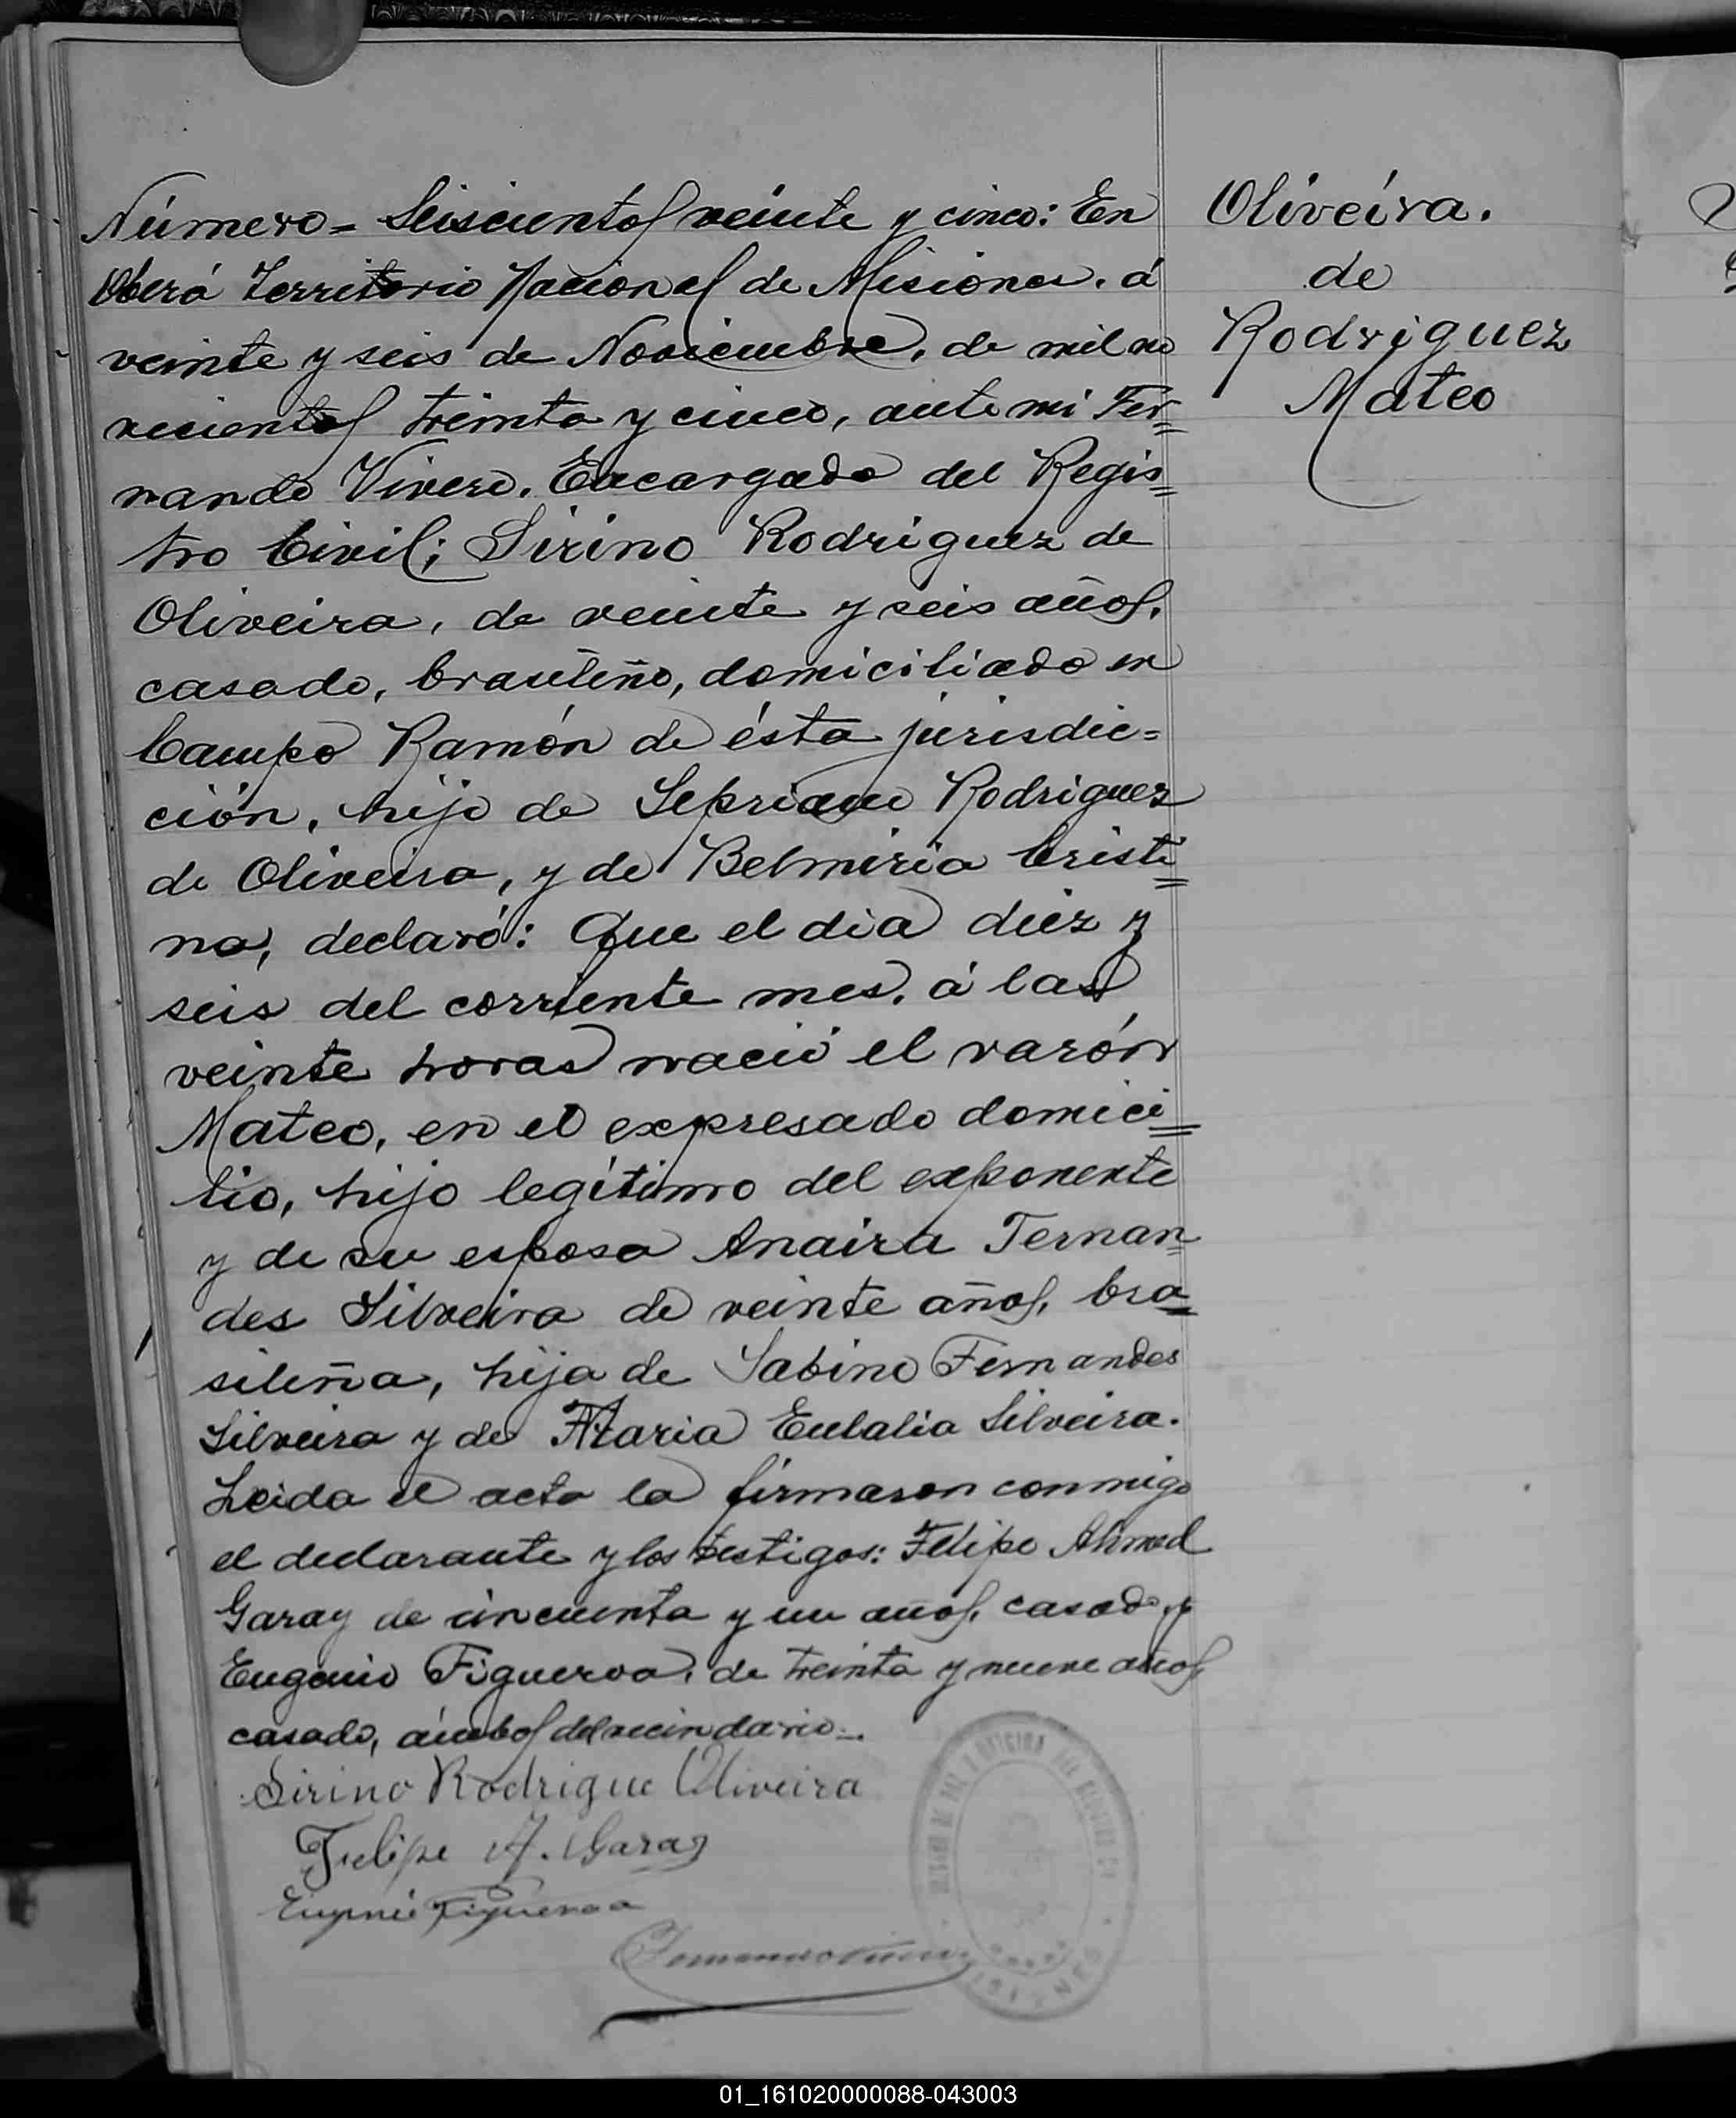 Número = Seiscientos veinte y cinco: En
Oberá Territorio Nacional de Misiones, á
veinte y seis de Noviembre, de mil no
vecientos treinta y cinco, ante mi Fer=
nando Vivero, Encargado del Regis=
tro Civil; Sirino Rodriguez de
Oliveira, de veinte y seis años,
casado, brasileño, domiciliado en
Campo Ramón de ésta jurisdic=
ción, hijo de Sepriano Rodriguez
de Oliveira, y de Belmiria Cristi=
na, declaró: Que el dia diez y
seis del corriente mes, á las
veinte horas nació el varón
Mateo, en el expresado domici=
lio, hijo legítimo del exponente
y de su esposa Anaira Fernan=
des Silveira de veinte años, bra=
sileña, hija de Sabino Fernandes
Silveira y de Maria Eulalia Silveira.
Leida el acta la firmaron conmigo
el declarante y los testigos: Felipe Ahmed
Garay de cincuenta y un años, casado y
Eugenio Figueroa, de treinta y nueve años
casado, ámbos del vecindario.
Sirino Rodrigue Oliveira
Felipe A. Garay
Eugenio Figueroa
Oliveira.
de
Rodriguez
Mateo
01_161020000088-043003